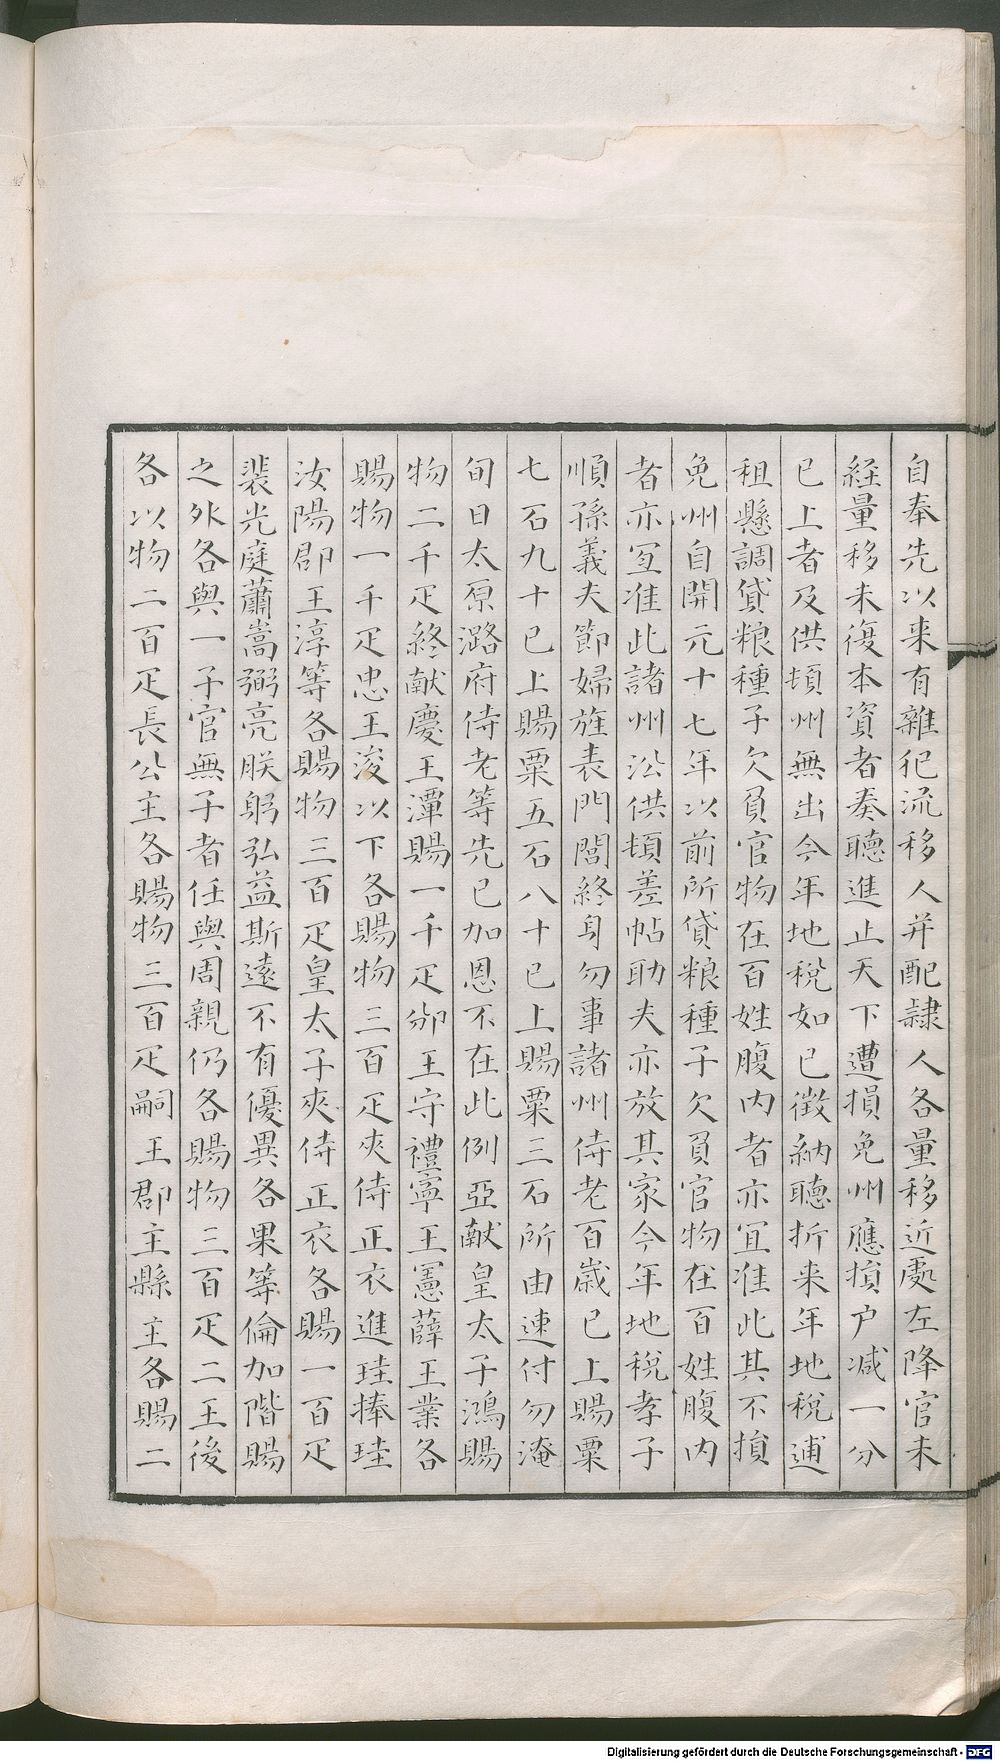 自奉先以来有雜犯流移人并配隷人各量移近處左降官未
経量移未復本資者奏聽進止天下遭損免州應損户减一分
已上者及供頓州無出今年地稅如已徵納聽折来年地稅逋
租懸調貸粮種子欠負官物在百姓腹内者亦冝准此其不損
免州自開元十七年以前所貸粮種子欠負官物在百姓腹内
者亦冝准此諸州沿供頓差帖助夫亦放其家今年地稅孝子
順孫義夫節婦旌表門閭終身勿事諸州侍老百歳已上賜粟
七石九十已上賜粟五石八十已上賜粟三石所由速付勿淹
旬日太原潞府侍老等先已加恩不在此例亞献皇太子鴻賜
物二千疋終献慶王潭賜一千疋邠王守禮寧王憲薛王業各
賜物一千疋忠王浚以下各賜物三百疋夾侍正衣進珪捧珪
汝陽郡王淳等各賜物三百疋皇太子夾侍正衣各賜一百疋
裴光庭蕭嵩弼亮朕躬弘益斯遠不有優異各果等倫加階賜
之外各與一子官無子者任與周親仍各賜物三百疋二王後
各以物二百疋長公主各賜物三百疋嗣王郡主縣主各賜二
Digitalisierung gefördert durch die Deutsche Forschungsgemeinschaft - DFG